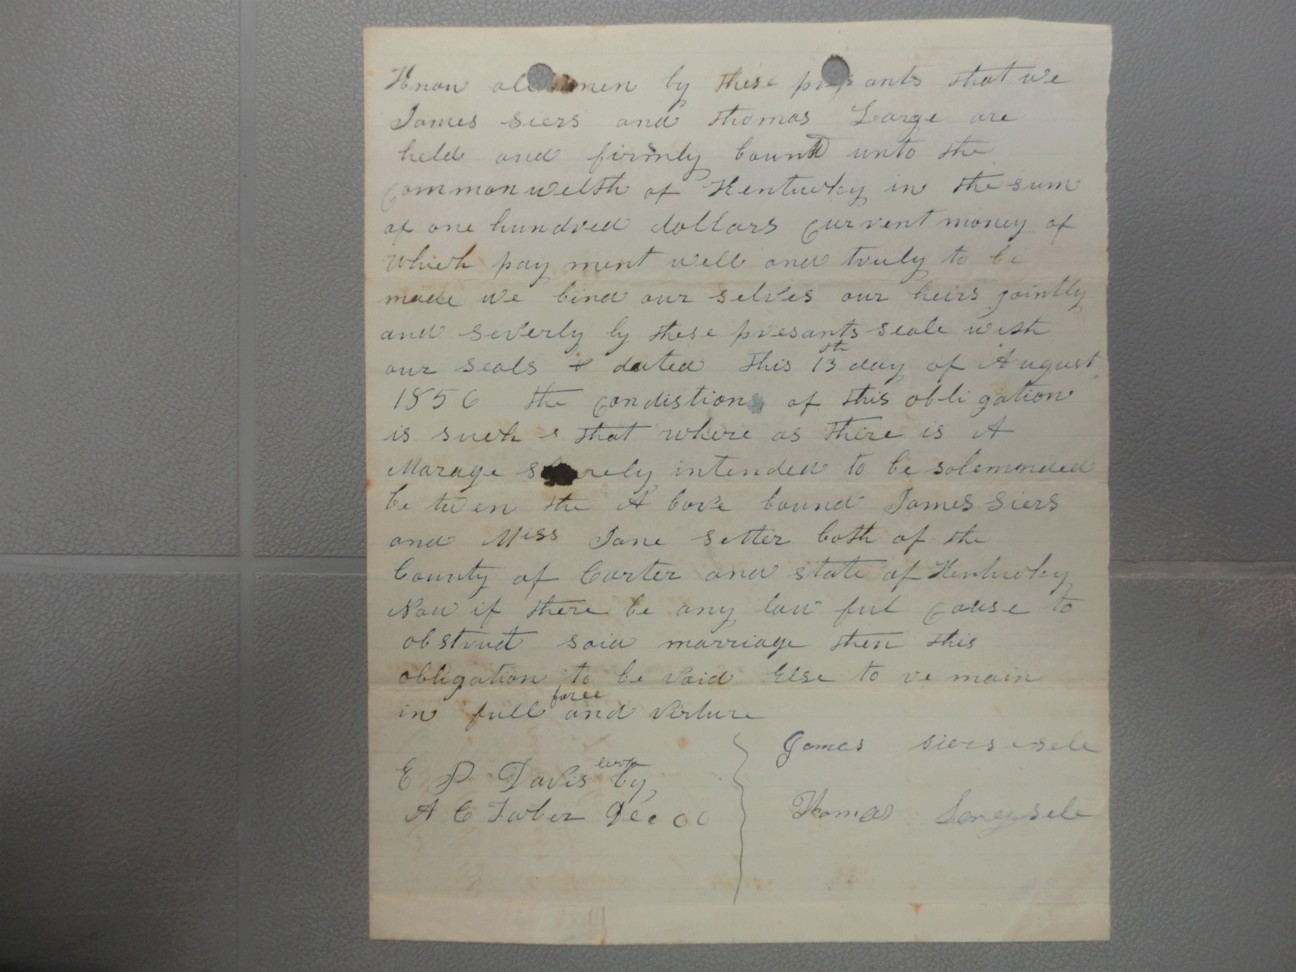 Know all men by these presants that we
James Siers and Thomas Large are
held and firmly bound unto the
Commonwelth of Kentucky in the sum
of one hundred dollars Current money of
Which pay ment well and truly to be
made we bind our selves our heirs jointly
and severly by these presants seale with
our seals & dated this 13th day of August
1856 the condistion of this obligation
is such that where as there is A
Marage intended to be solemonded
be tween the A bove bound James Siers
and Miss Jane Setter both of the
County of Carter and state of Kentucky
Now if there be any law ful cause to
obstruct said marriage then this
obligation to be void Else to re main
in full force and virture
James Siers sele
E P Davis by
Thomas sele
A C